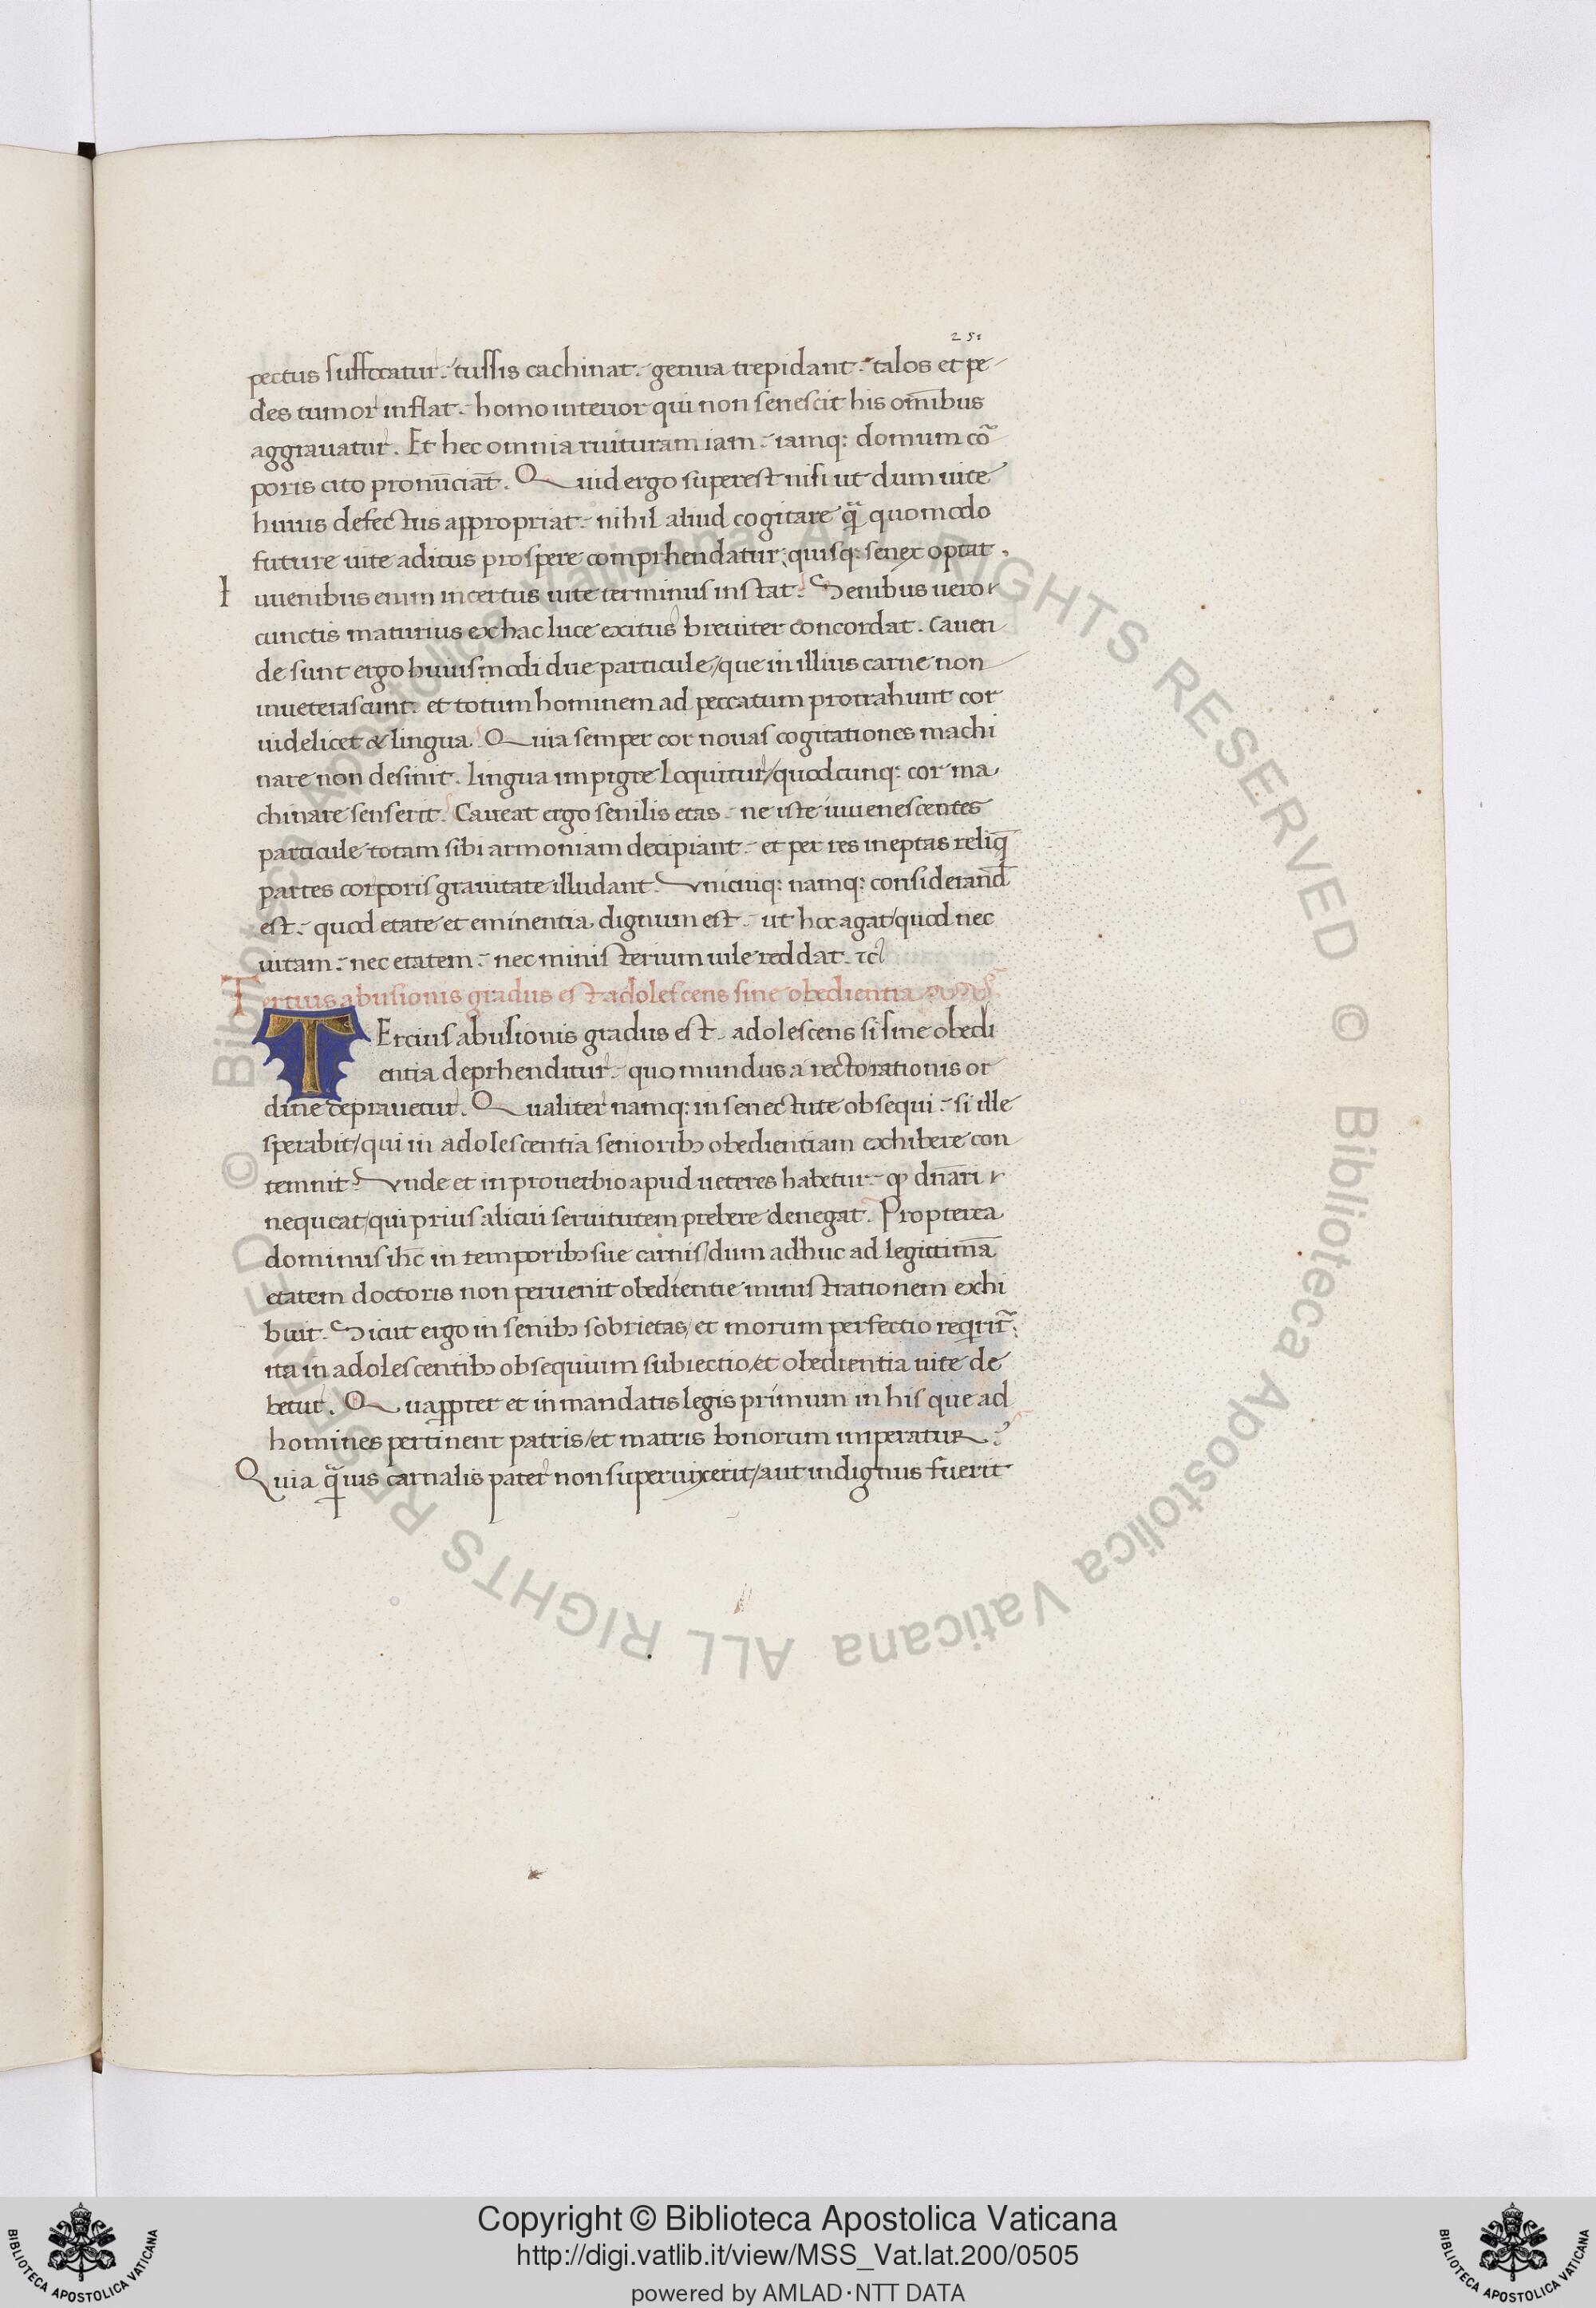 251
pectus suffocatur. tussis cachinat. genua trepidant. talos et pe
des tumor inflat. homo interior qui non senescit his om̄ibus
aggrauatur. Et hec omnia ruituram iam. iamq: domum co᷑
poris cito pronūciāt. Quid ergo superest nisi ut dum uite
huius defectus appropriat. nihil aliud cogitare qᷓ quomodo
future uite aditus prospere comprhendatur; quisq: senex optat.
Iuuenibus enim incertus uite terminus instat. Senibus uero
cunctis maturius ex hac luce exitus breuiter concordat. Cauen
de sunt ergo huiusmodi due particule/ que in illius carne non
inueterascunt. et totum hominem ad peccatum protrahunt cor
uidelicet & lingua. Quia semper cor nouas cogitationes machi
nare non desinit. lingua impigre loquitur/ quodcunq: cor ma
chinare senserit. Caueat ergo senilis etas. ne iste iuuenescentes
particule totam sibi armoniam decipiant. et per res ineptas reliq̄
partes corporis grauitate illudant. Vnicuiq: namq: considerand̄
est. quod etate et eminentia dignum est. ut hoc agat/ quod nec
uitam. nec etatem. nec ministerium uile reddat. ⁊c̉
Tertius abusionis gradus est adolescens sine obedientia
TErcius abusionis gradus est. adolescens si sine obedi
entia deprhenditur. quo mundus a recto rationis or
dine deprauetur. Qualiter namq: in senectute obsequi. si ille
sperabit/ qui in adolescentia seniorib; obedientiam exhibere con
temnit. Vnde et in prouerbio apud ueteres habetur. ꝙ dn̄ari
nequeat/ qui prius alicui seruitutem prebere denegat. Propterea
dominus ih̄c in temporib; sue carnis/ dum adhuc ad legittimā
etatem doctoris non peruenit obedientie ministrationem exhi
buit. Sicut ergo in senib; sobrietas/ et morum perfectio reqrit᷑:
ita in adolescentib; obsequium subiectio/ et obedientia uite de
betur. Quappter et in mandatis legis primum in his que ad
homines pertinent patris/ et matris honorum imperatur.
Quia qᷓuis carnalis pater non superuixerit/ aut indignus fuerit
© Biblioteca Apostolica Vaticana ALL RIGHTS RESERVED © Biblioteca Apostolica Vaticana ALL RIGHTS RESERVED
BIBLIOTECA APOSTOLICA VATICANA
Copyright © Biblioteca Apostolica Vaticana
http://digi.vatlib.it/view/MSS_Vat.lat.200/0505
powered by AMLAD·NTT DATA
BIBLIOTECA APOSTOLICA VATICANA